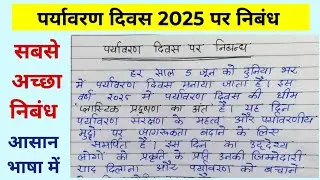 पर्यावरण दिवस 2025 पर निबंध
सबसे
अच्छा
निबंध
आसान
भाषा में
पर्यावरण दिवस पर निबन्ध
हर साल 5 जून को दुनिया भर
में पर्यावरण दिवस मनाया जाता है। इस
वर्ष 2025 में पर्यावरण दिवस की थीम
प्लास्टिक प्रदूषण का अंत है। यह दिन
पर्यावरण संरक्षण के महत्व और पर्यावरणीय
मुद्दों पर जागरूकता बढ़ाने के लिए
समर्पित है। इस दिन का उद्देश्य
लोगों को प्रकृति के प्रति उनकी जिम्मेदारी
याद दिलाना और पर्यावरण को बचाने